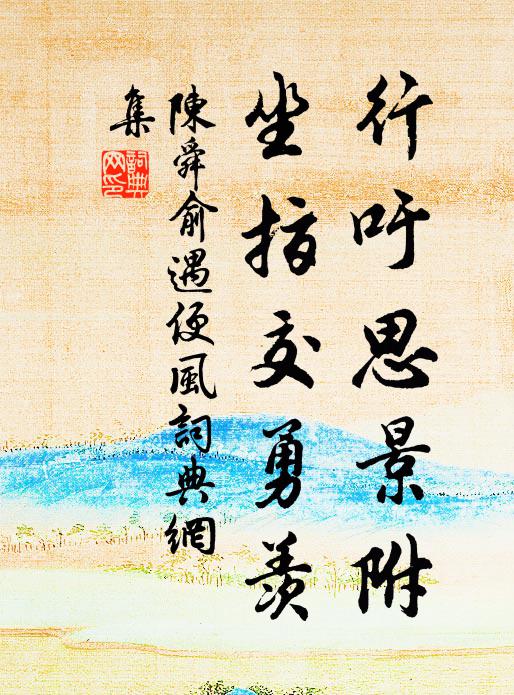 行吁思景附
坐指交勇羨
陳舜俞遇便風詞典網
集
詞典
网印